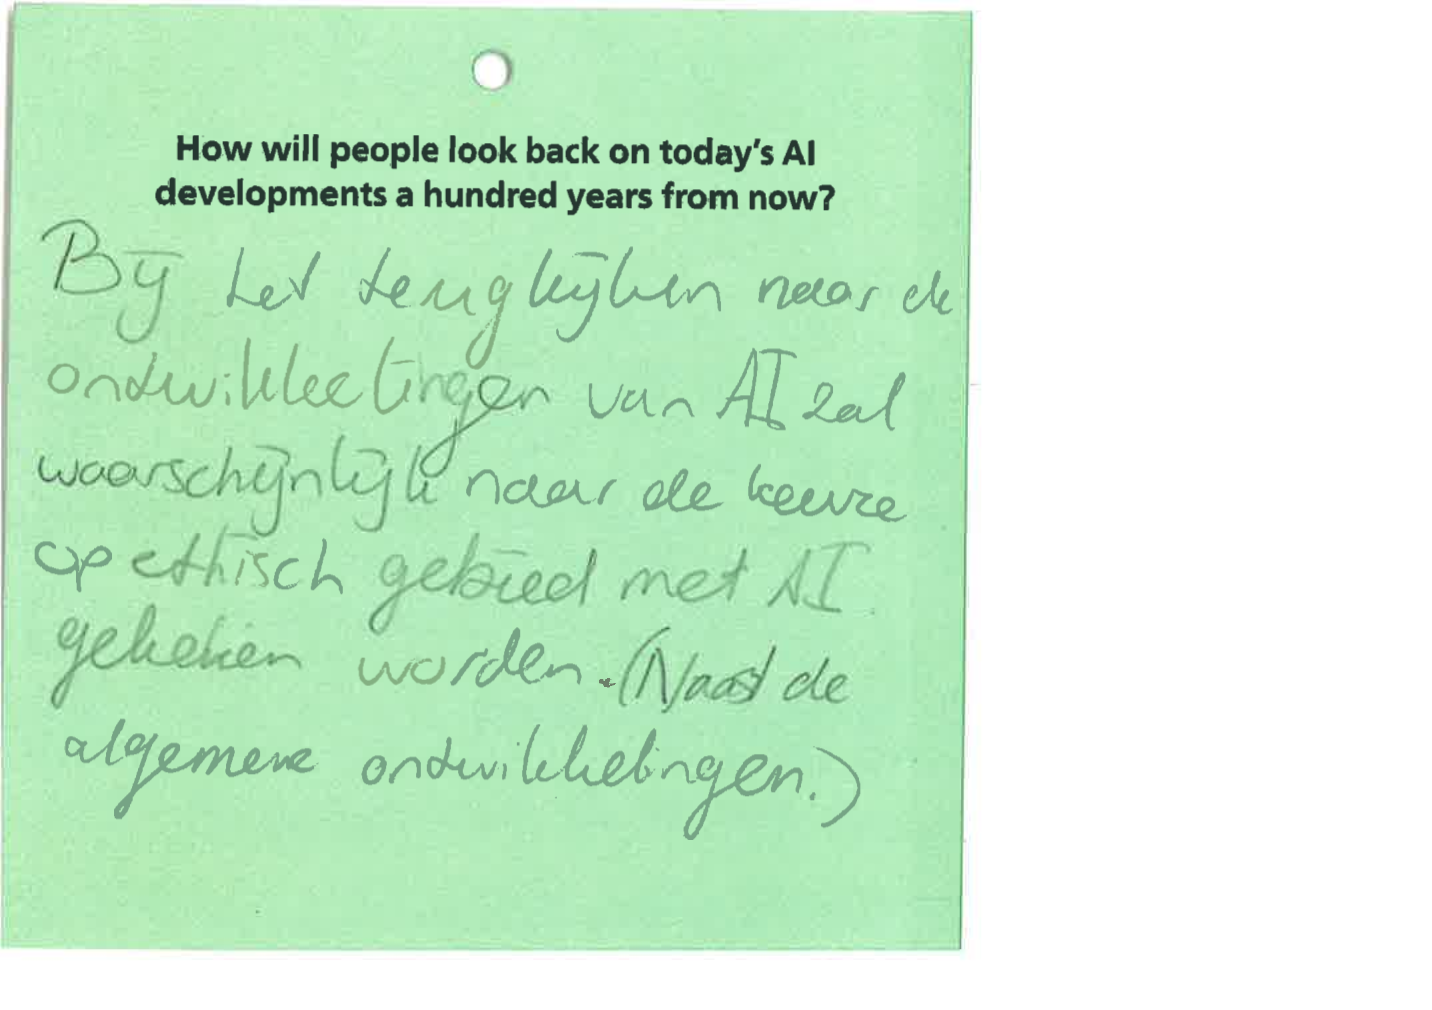 How will people look back on today's AI
developments a hundred years from now?
Bij het terugkijken naar de
ontwikkelingen van AI zal
waarschijnlijk naar de keuze
op ethisch gebied met AI
gekeken worden. (Naast de
algemene ontwikkelingen.)